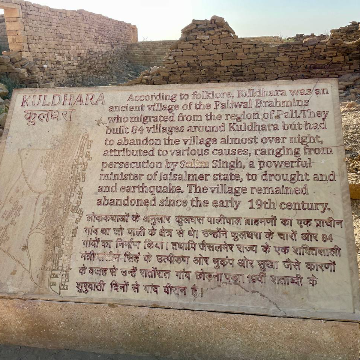 KULDHARA
कुलधरा
According to folklore, Kuldhara was an
ancient village of the Paliwal Brahmins
who migrated from the region of Pali.They
built 84 villages around Kuldhara but had
to abandon the village almost over night,
attributed to various causes, ranging from
persecution by Salim Singh, a powerful
minister of Jaisalmer state, to drought and
and earthquake. The village remained
abandoned since the early 19th century.
लोककथाओं के अनुसार कुलधरा पालीवाल ब्राह्मणों का एक प्राचीन
गांव था जो पाली के क्षेत्र से थे। उन्होंने कुलधरा के चारों ओर 84
गांवों का निर्माण किया। तथापि जैसलमेर राज्य के एक शक्तिशाली
मंत्री सलीम सिंह के उत्पीड़न और भूकंप और सूखा जैसे कारणों
के वजह से उन्हें रातोंरात गांव छोड़ना पड़ा। 19वीं शताब्दी के
शुरुवाती दिनों से यह वीरान है।